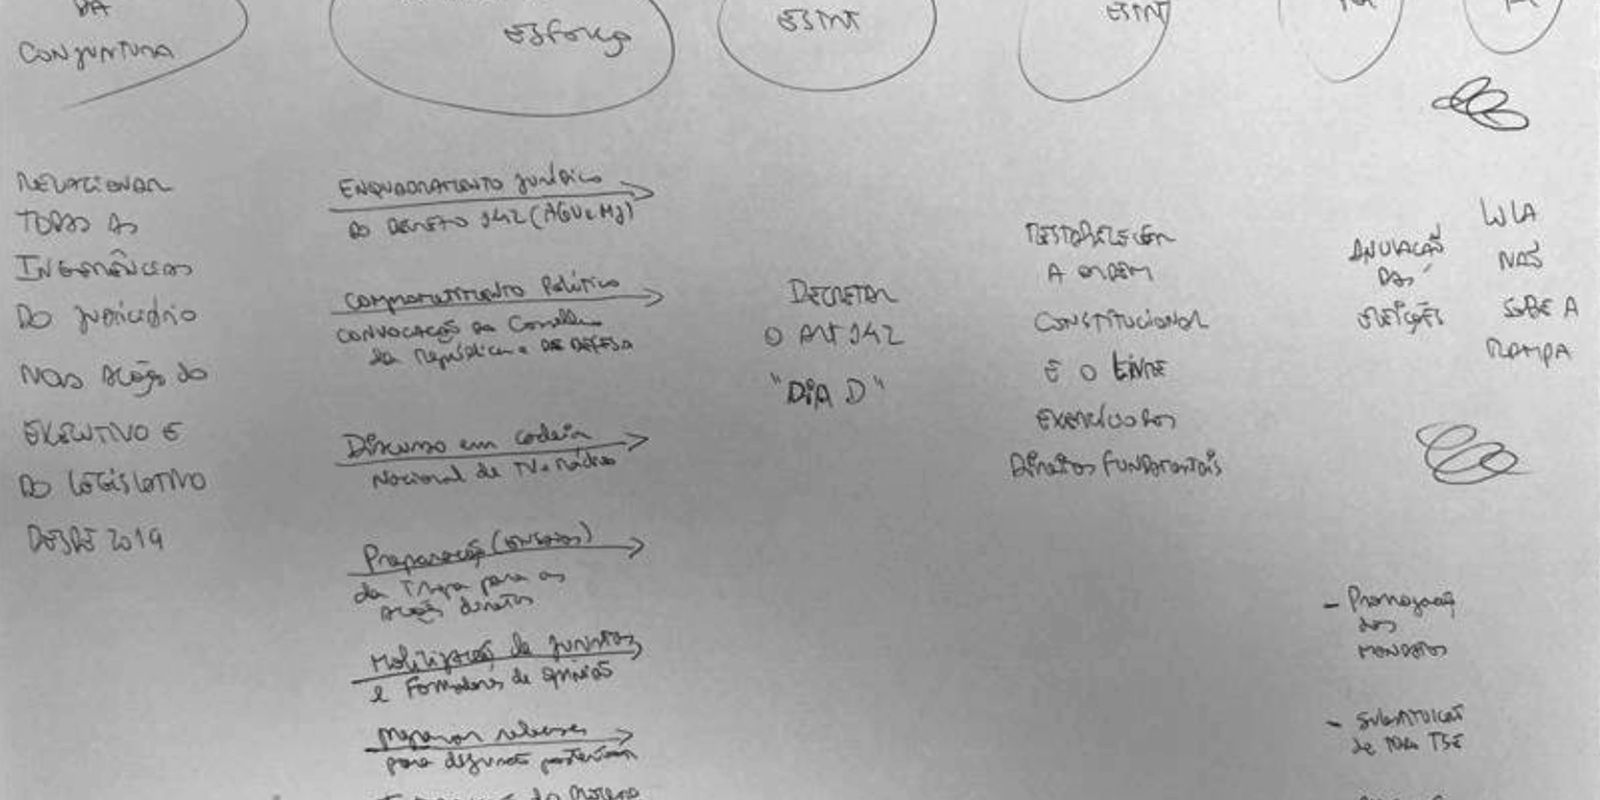 DA
CONJUNTURA
esforço
ESTRAT
ESTRAT
RELACIONAR
TODAS AS
INGERÊNCIAS
DO JUDICIÁRIO
NAS AÇÕES DO
EXECUTIVO E
DO LEGISLATIVO
DESDE 2019
ENQUADRAMENTO jurídico
DO DECRETO 142 (AGU e MJ)
COMPROMETIMENTO Político
CONVOCAÇÃO do Conselho
da República e DE DEFESA
Discurso em cadeia
Nacional de TV e rádio
Preparação (ENSAIOS)
da Tropa para as
ações diretas
Mobilização de juristas
e Formadores de opinião
preparar releases
para
do
DECRETAR
O ART 142
"DIA D"
RESTABELECER
A ORDEM
CONSTITUCIONAL
E O LIVRE
EXERCÍCIO DOS
Direitos FUNDAMENTAIS
ANULAÇÃO
DAS
ELEIÇÕES
LULA
NÃO
SOBE A
RAMPA
- Prorrogação
dos
MANDATOS
- SUBSTITUIÇÃO
de TODO TSE